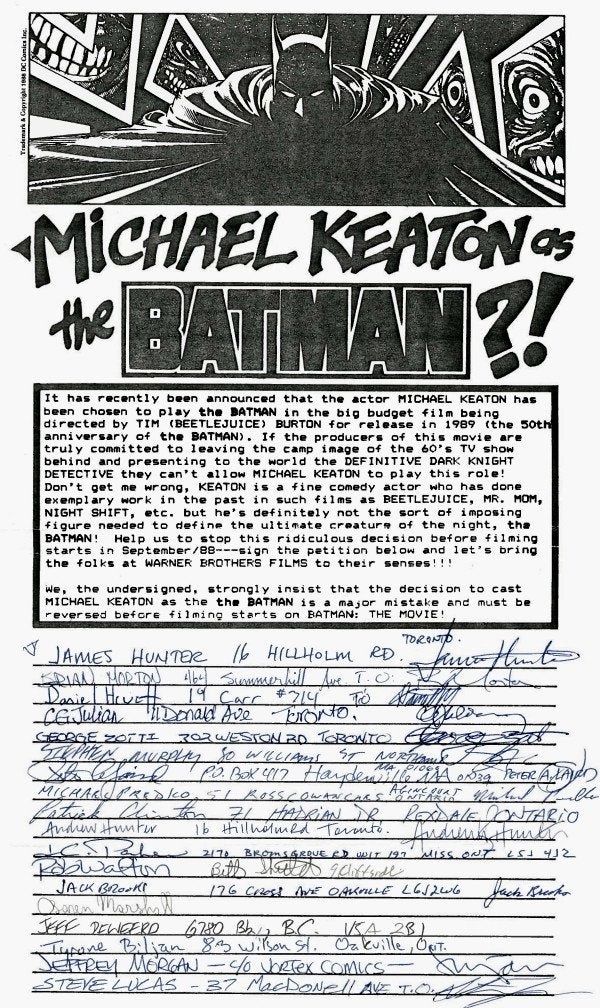 Trademark & Copyright 1988 DC Comics Inc.
MICHAEL KEATON as
the BATMAN?!
It has recently been announced that the actor MICHAEL KEATON has
been chosen to play the BATMAN in the big budget film being
directed by TIM (BEETLEJUICE) BURTON for release in 1989 (the 50th
anniversary of the BATMAN). If the producers of this movie are
truly committed to leaving the camp image of the 60's TV show
behind and presenting to the world the DEFINITIVE DARK KNIGHT
DETECTIVE they can't allow MICHAEL KEATON to play this role!
Don't get me wrong, KEATON is a fine comedy actor who has done
exemplary work in the past in such films as BEETLEJUICE, MR. MOM,
NIGHT SHIFT, etc. but he's definitely not the sort of imposing
figure needed to define the ultimate creature of the night, the
BATMAN! Help us to stop this ridiculous decision before filming
starts in September/88---sign the petition below and let's bring
the folks at WARNER BROTHERS FILMS to their senses!!!
We, the undersigned, strongly insist that the decision to cast
MICHAEL KEATON as the the BATMAN is a major mistake and must be
reversed before filming starts on BATMAN: THE MOVIE!
JAMES HUNTER 16 HILLHOLM RD. TORONTO. James Hunter
BRIAN MORTON Summerhill Ave T.O.
Daniel 19 Carr #214 T.O
CG Julian 11 Donald Ave TORONTO.
GEORGE ZOTTI 302 WESTON RD TORONTO
STEPHEN MURPHY 30 WILLIAMS ST
P.O. BOX 417 Haydenville MA 01039 PETER A. LAIRD
MICHAEL PREDKO, 51 AGINCOURT ONTARIO
Patrick 71 HADRIAN DR. REXDALE, ONTARIO
Andrew Hunter 16 Hillholm Rd Toronto. Andrew Hunter
2170 BROMSGROVE RD UNIT 197 MISS. ONT L5J 4J2
Rob Walton Beth
JACK BROOKS 176 CROSS AVE OAKVILLE L6J2W6 Jack Brooks
Marshall
JEFF 6780 B.C. V5A 2B1
Tyrone Biljan 83 Wilson St. Oakville, Ont.
JEFFREY MORGAN - c/o VORTEX COMICS -
STEVE LUCAS - 37 MacDONELL AVE T.O.